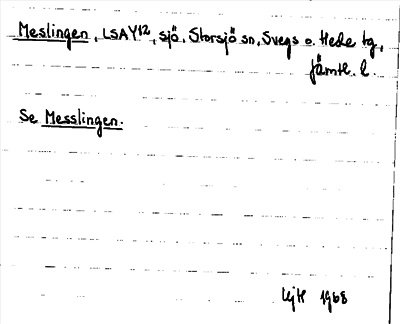 Meslingen, LSAY12, sjö, Storsjö sn, Svegs o. Hede tg,
Jämtl. l.
Se Messlingen.
1968